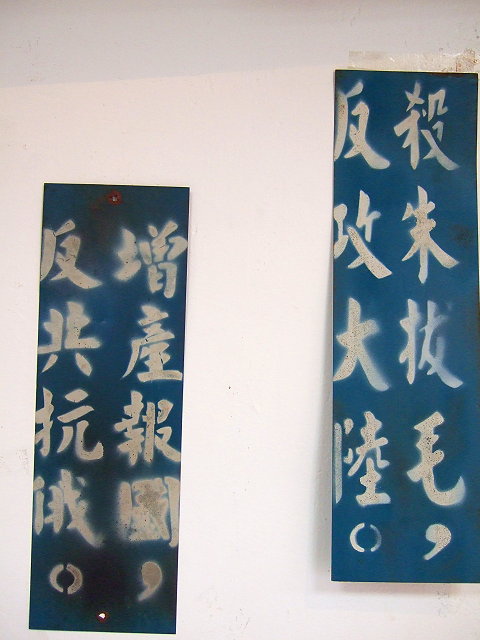 殺朱拔毛，
反攻大陸。
增產報國，
反共抗俄。